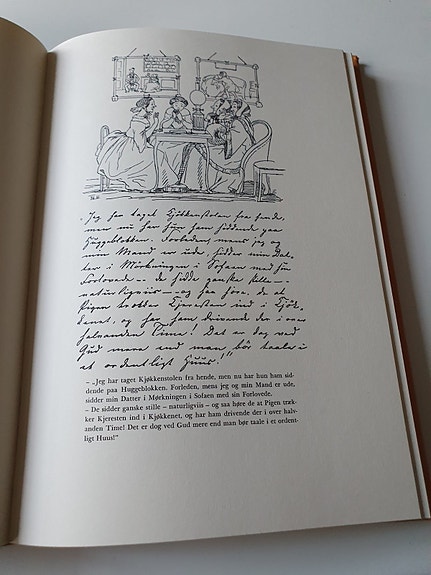 „Jeg har taget Kjøkkenstolen fra hende,
men nu har hun ham siddende paa
Huggeblokken. Forleden, mens jeg og
min Mand er ude, sidder min Dat-
ter i Mørkningen i Sofaen med sin
Forlovede – de sidde ganske stille –
naturligviis – og saa høre, de at
Pigen trækker Kjeresten ind i Kjøk-
kenet, og har ham drivende der i over
halvanden Time! Det er dog ved
Gud mere end man bør taale i
et ordentligt Huus!"
– „Jeg har taget Kjøkkenstolen fra hende, men nu har hun ham sid-
dende paa Huggeblokken. Forleden, mens jeg og min Mand er ude,
sidder min Datter i Mørkningen i Sofaen med sin Forlovede.
– De sidder ganske stille – naturligviis – og saa høre de at Pigen træk-
ker Kjeresten ind i Kjøkkenet, og har ham drivende der i over halv-
anden Time! Det er dog ved Gud mere end man bør taale i et ordent-
ligt Huus!"